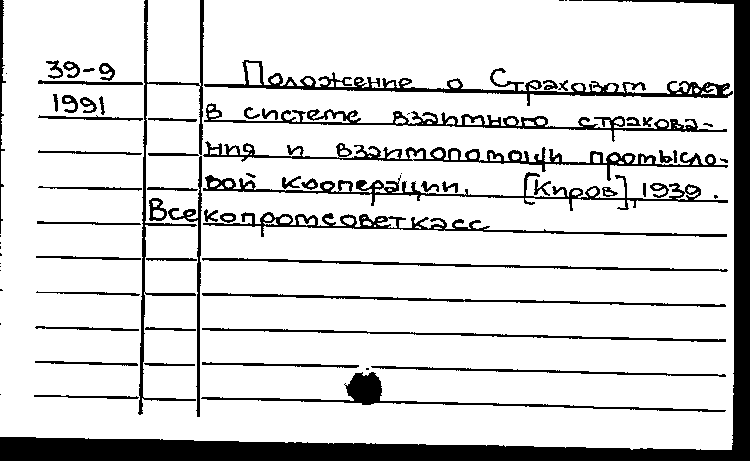 39-9 Положение о Страховом совете
1991 в системе взаимного страхова-
ния и взаимопомощи промысло-
вой кооперации. [Киров], 1939.
Всекопромсоветкасс